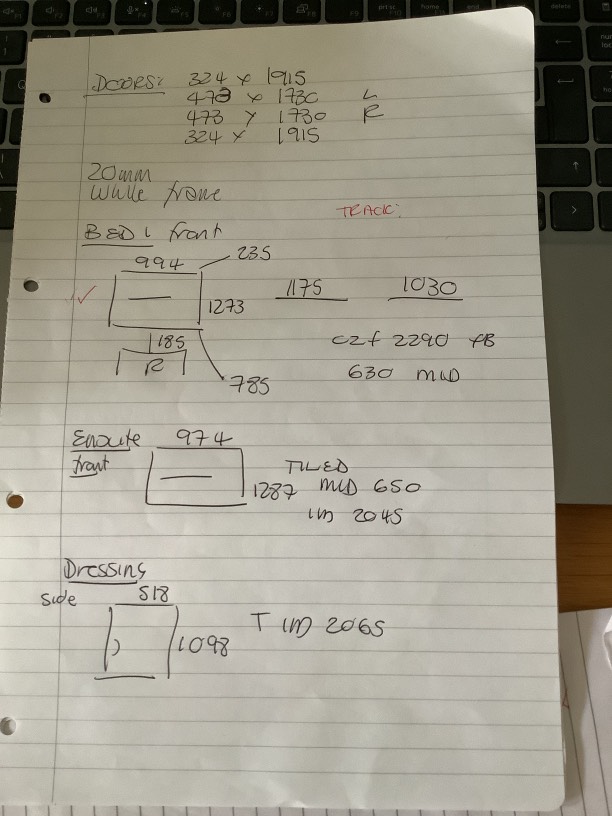 DOORS: 324 x 1915
473 x 1730 L
473 x 1730 R
324 x 1915
20mm
White frame
TRACK:
BED 1 front
994 235
1273 1175 1030
185 czf 2290 fB
R 630 MID
785
Ensuite 974
front TILED
1287 MID 650
IM 2045
Dressing
Side 518
1098 T IM 2065